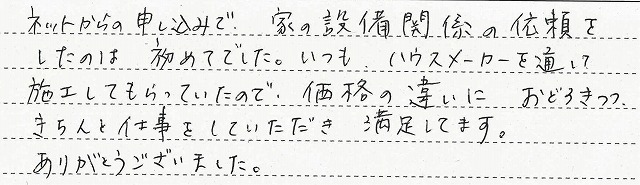 ネットからの申し込みで、家の設備関係の依頼を
したのは 初めてでした。いつも、ハウスメーカーを通して
施工してもらっていたので、価格の違いに おどろきつつ、
きちんと仕事をしていただき 満足してます。
ありがとうございました。